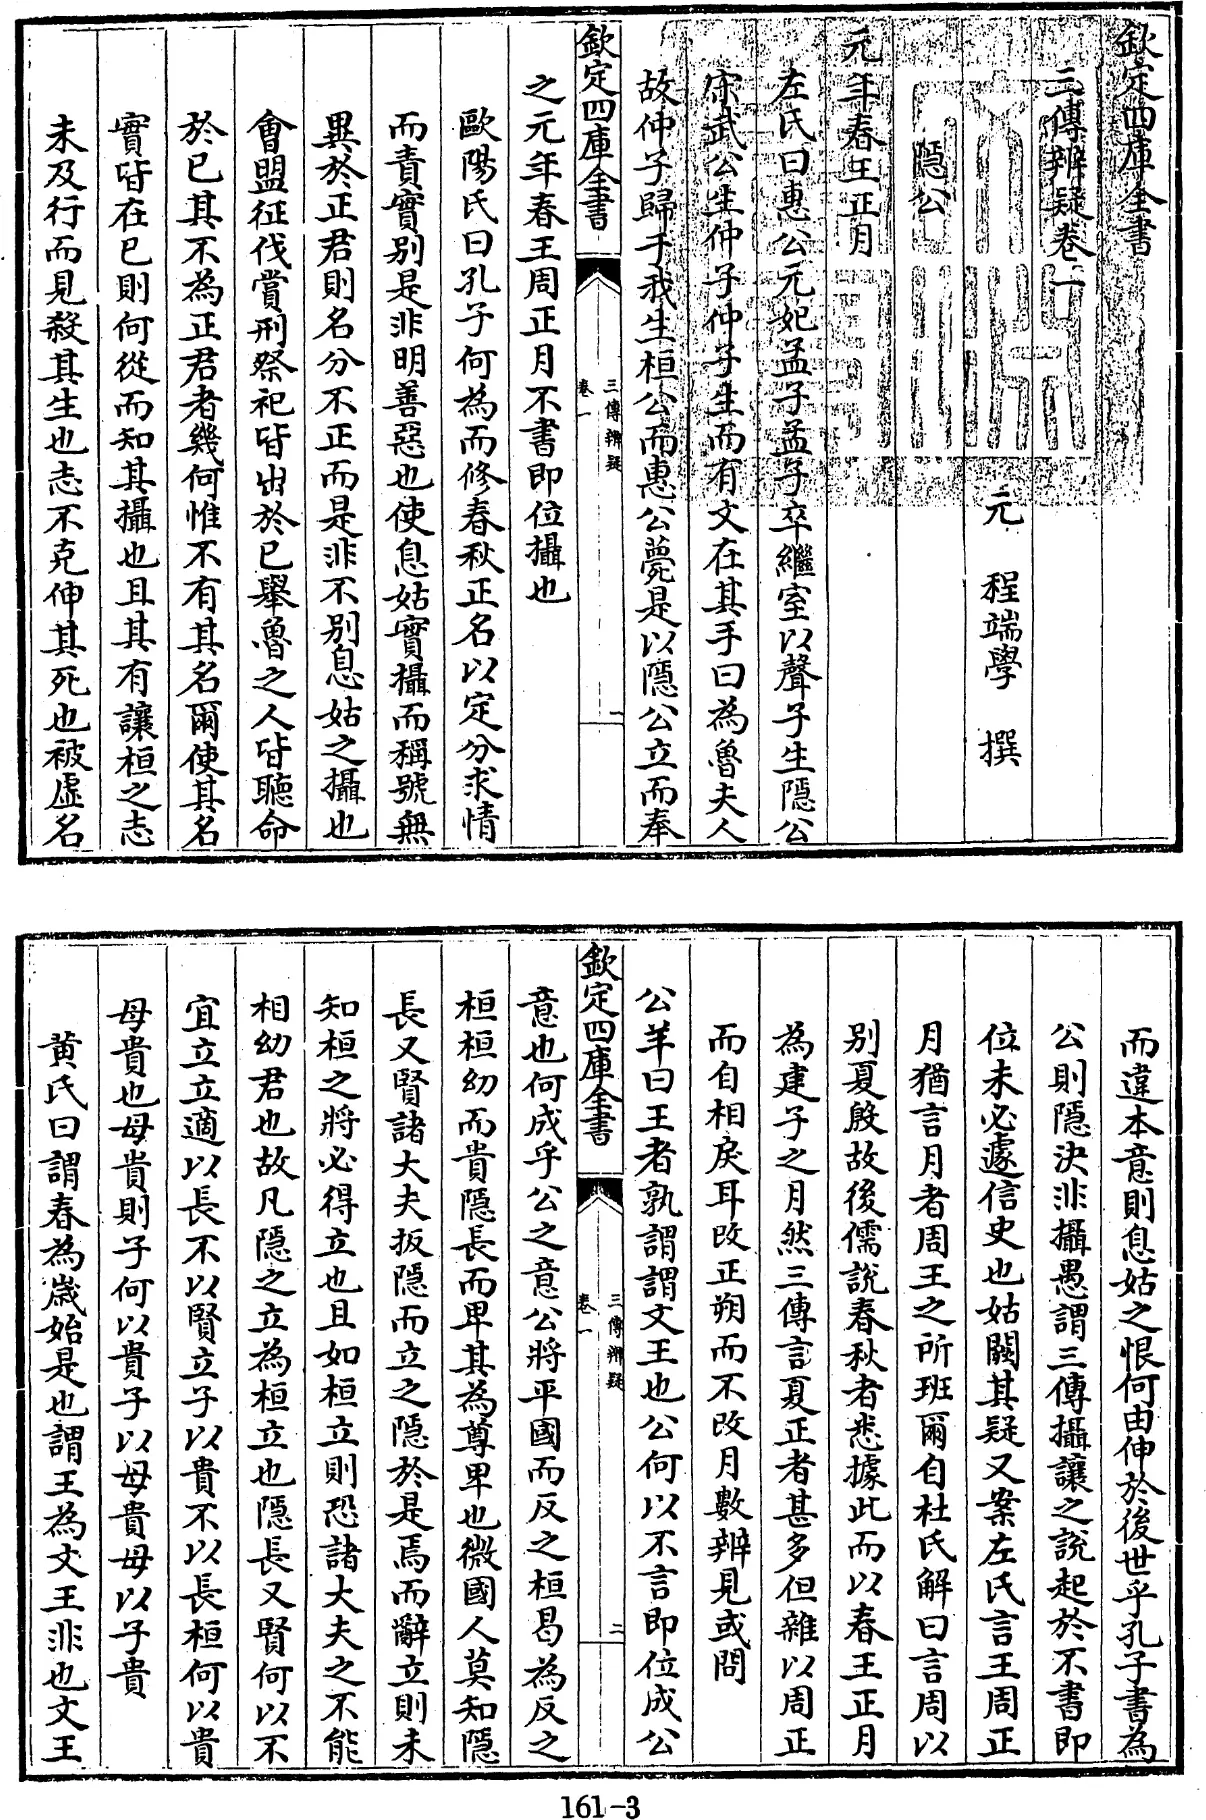 欽定四庫全書
三傳辨疑卷一
元 程端學 撰
隱公
元年春王正月
左氏曰惠公元妃孟子孟子卒繼室以聲子生隱公
宋武公生仲子仲子生而有文在其手曰為魯夫人
故仲子歸于我生桓公而惠公薨是以隱公立而奉
欽定四庫全書
三傳辨疑
卷一
一
之元年春王周正月不書即位攝也
歐陽氏曰孔子何為而修春秋正名以定分求情
而責實别是非明善惡也使息姑實攝而稱號無
異於正君則名分不正而是非不别息姑之攝也
會盟征伐賞刑祭祀皆出於已舉魯之人皆聽命
於已其不為正君者幾何惟不有其名爾使其名
實皆在已則何從而知其攝也且其有讓桓之志
未及行而見殺其生也志不克伸其死也被虛名
而違本意則息姑之恨何由伸於後世乎孔子書為
公則隱決非攝愚謂三傳攝讓之説起於不書即
位未必遽信史也姑闕其疑又案左氏言王周正
月猶言月者周王之所班爾自杜氏解曰言周以
别夏殷故後儒説春秋者悉據此而以春王正月
為建子之月然三傳言夏正者甚多但雜以周正
而自相戾耳改正朔而不改月數辨見或問
公羊曰王者孰謂謂文王也公何以不言即位成公
欽定四庫全書
三傳辨疑
卷一
二
意也何成乎公之意公將平國而反之桓曷為反之
桓桓幼而貴隱長而卑其為尊卑也微國人莫知隱
長又賢諸大夫扳隱而立之隱於是焉而辭立則未
知桓之將必得立也且如桓立則恐諸大夫之不能
相幼君也故凡隱之立為桓立也隱長又賢何以不
宜立立適以長不以賢立子以貴不以長桓何以貴
母貴也母貴則子何以貴子以母貴母以子貴
黄氏曰謂春為歲始是也謂王為文王非也文王
161-3